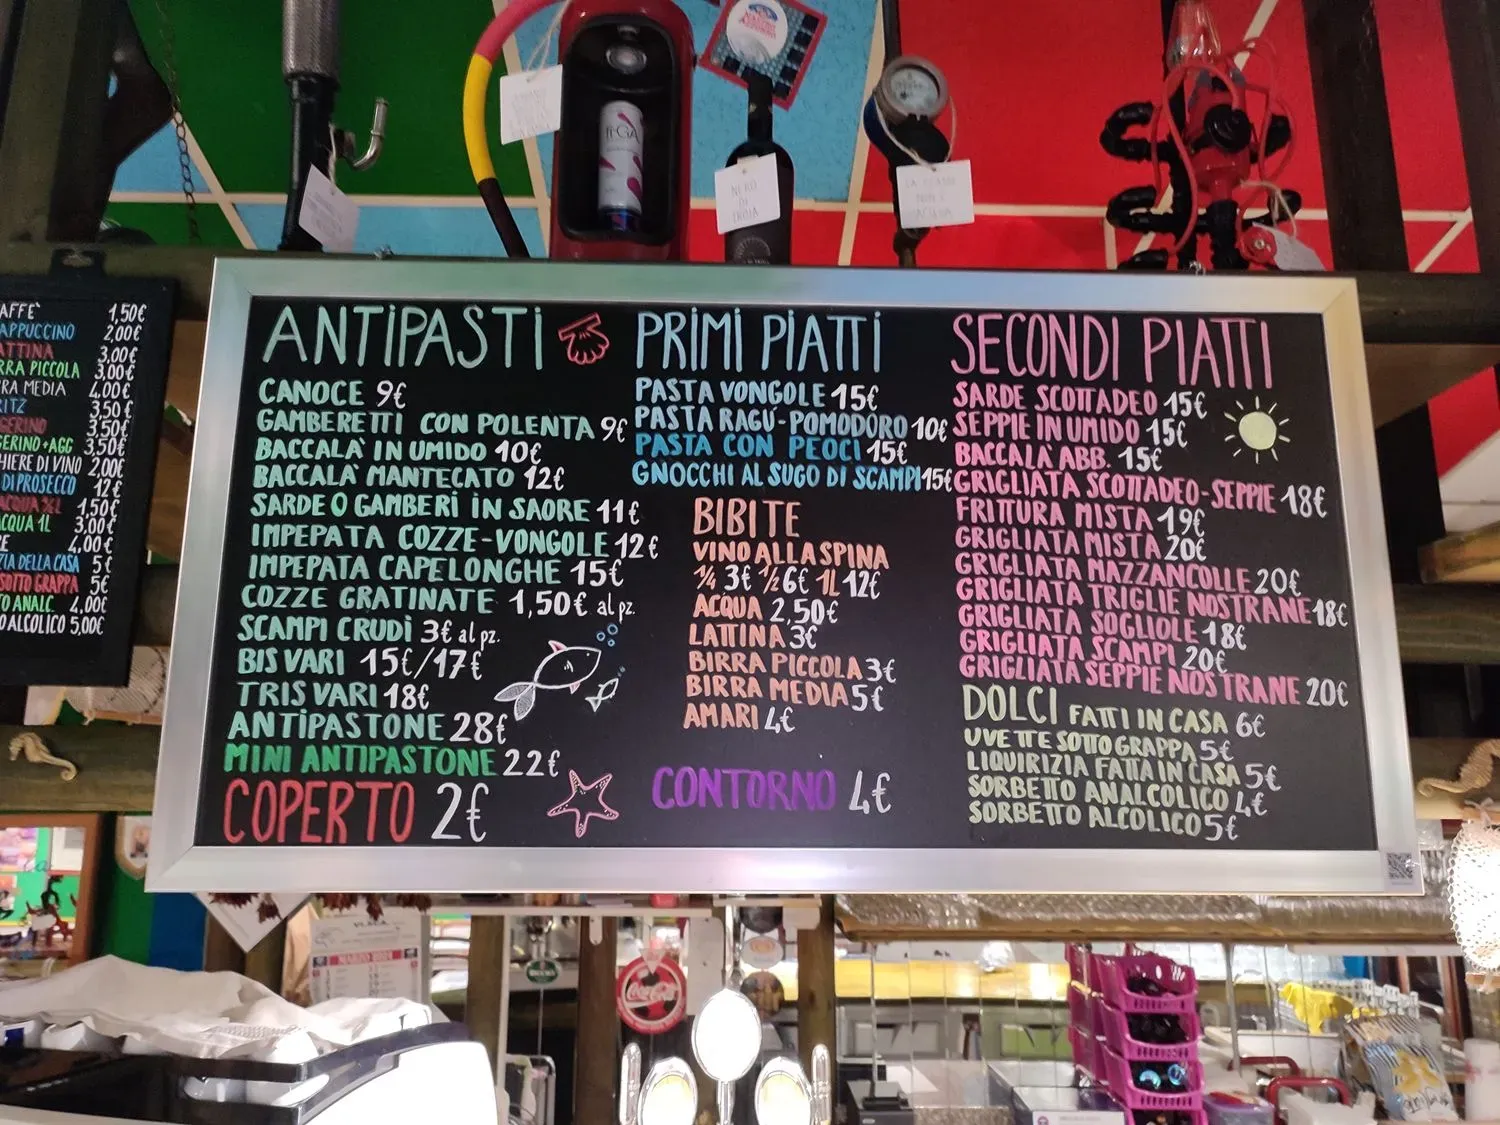 1,50€
APPUCCINO 2,00€
ATTINA 3,00€
RRA PICCOLA 3,00€
RRA MEDIA 4,00€
RITZ 3,50€
GERINO 3,50€
GERINO+AGG 3,50€
HIERE DI VINO 2,00€
DI PROSECCO 12€
ACQUA ½L 1,50€
ACQUA 1L 3,00€
4,00€
ZIA DELLA CASA 5€
SOTTO GRAPPA 5€
TO ANALC. 4,00€
O ALCOLICO 5,00€
NERO
DI
ANTIPASTI
CANOCE 9€
GAMBERETTI CON POLENTA 9€
BACCALÀ IN UMIDO 10€
BACCALÀ MANTECATO 12€
SARDE O GAMBERI IN SAORE 11€
IMPEPATA COZZE-VONGOLE 12€
IMPEPATA CAPELONGHE 15€
COZZE GRATINATE 1,50€ al pz.
SCAMPI CRUDI 3€ al pz.
BIS VARI 15€/17€
TRIS VARI 18€
ANTIPASTONE 28€
MINI ANTIPASTONE 22€
COPERTO 2€
PRIMI PIATTI
PASTA VONGOLE 15€
PASTA RAGÚ-POMODORO 10€
PASTA CON PEOCI 15€
GNOCCHI AL SUGO DI SCAMPI 15€
BIBITE
VINO ALLA SPINA
¼ 3€ ½ 6€ 1L 12€
ACQUA 2,50€
LATTINA 3€
BIRRA PICCOLA 3€
BIRRA MEDIA 5€
AMARI 4€
CONTORNO 4€
SECONDI PIATTI
SARDE SCOTTADEO 15€
SEPPIE IN UMIDO 15€
BACCALÀ ABB. 15€
GRIGLIATA SCOTTADEO-SEPPIE 18€
FRITTURA MISTA 19€
GRIGLIATA MISTA 20€
GRIGLIATA MAZZANCOLLE 20€
GRIGLIATA TRIGLIE NOSTRANE 18€
GRIGLIATA SOGLIOLE 18€
GRIGLIATA SCAMPI 20€
GRIGLIATA SEPPIE NOSTRANE 20€
DOLCI FATTI IN CASA 6€
UVETTE SOTTO GRAPPA 5€
LIQUIRIZIA FATTA IN CASA 5€
SORBETTO ANALCOLICO 4€
SORBETTO ALCOLICO 5€
Coca-Cola